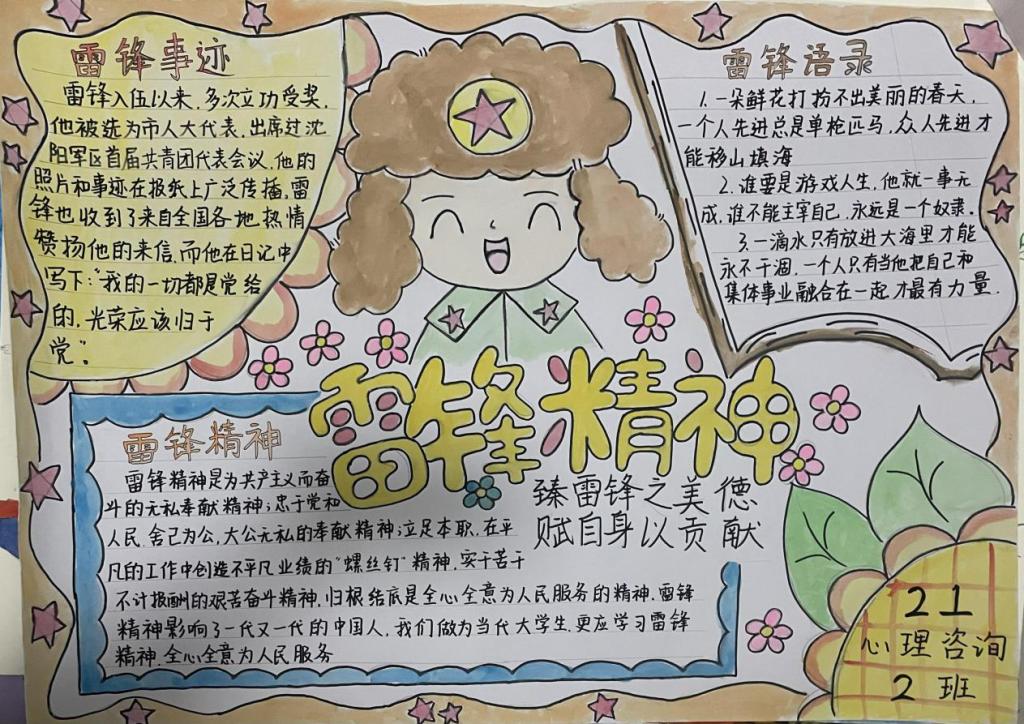 雷锋事迹
雷锋入伍以来，多次立功受奖，
他被选为市人大代表，出席过沈
阳军区首届共青团代表会议，他的
照片和事迹在报纸上广泛传播，雷
锋也收到了来自全国各地，热情
赞扬他的来信，而他在日记中
写下：“我的一切都是党给
的，光荣应该归于
党”。
雷锋语录
1.一朵鲜花打扮不出美丽的春天，
一个人先进总是单枪匹马，众人先进才
能移山填海
2.谁要是游戏人生，他就一事无
成，谁不能主宰自己，永远是一个奴隶。
3.一滴水只有放进大海里才能
永不干涸，一个人只有当他把自己和
集体事业融合在一起才最有力量.
雷锋精神
臻雷锋之美德
赋自身以贡献
雷锋精神
雷锋精神是为共产主义而奋
斗的无私奉献精神；忠于党和
人民，舍己为公，大公无私的奉献精神；立足本职，在平
凡的工作中创造不平凡业绩的“螺丝钉”精神，实干苦干
不计报酬的艰苦奋斗精神，归根结底是全心全意为人民服务的精神，雷锋
精神影响了一代又一代的中国人，我们做为当代大学生，更应学习雷锋
精神，全心全意为人民服务
21
心理咨询
2班